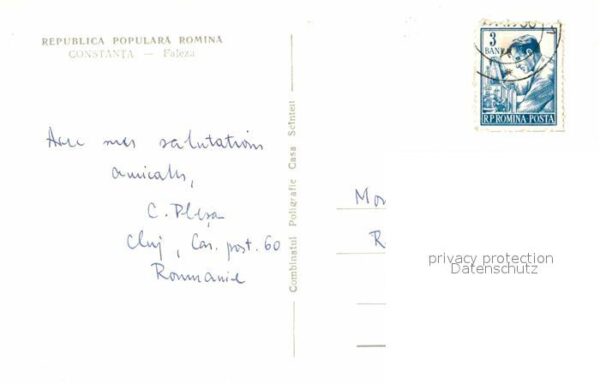 REPUBLICA POPULARĂ ROMÎNĂ
CONSTANȚA — Faleza
Avec mes salutations
amicales,
C. Pleșa
Cluj, Cas. post. 60
Roumanie
Combinatul Poligrafic Casa Scînteii
3
BANI
R.P. ROMINA POSTA
Mon
R
privacy protection
Datenschutz